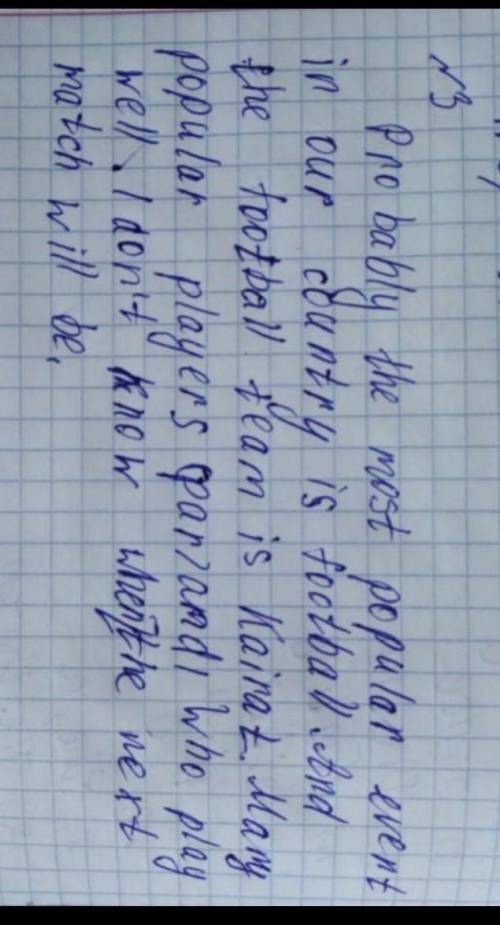 N3
Probably the most popular event
in our country is football. And
the football team is Kairat. Many
popular players who play
well. I don't know when the next
match will be.